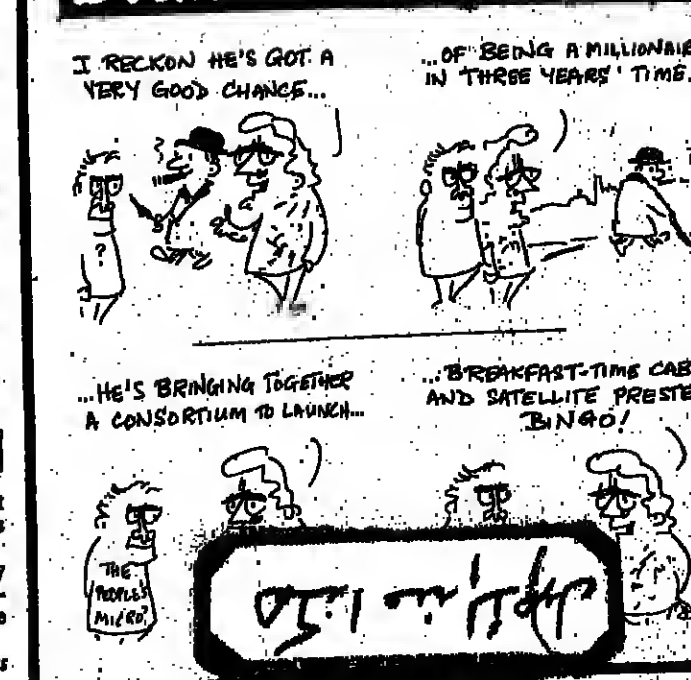 I RECKON HE'S GOT A
VERY GOOD CHANCE...
...OF BEING A MILLIONAIRE
IN THREE YEARS' TIME.
?
...HE'S BRINGING TOGETHER
A CONSORTIUM TO LAUNCH...
...BREAKFAST-TIME CAB
AND SATELLITE PRESTE
BINGO!
THE
PEOPLE'S
MICRO?